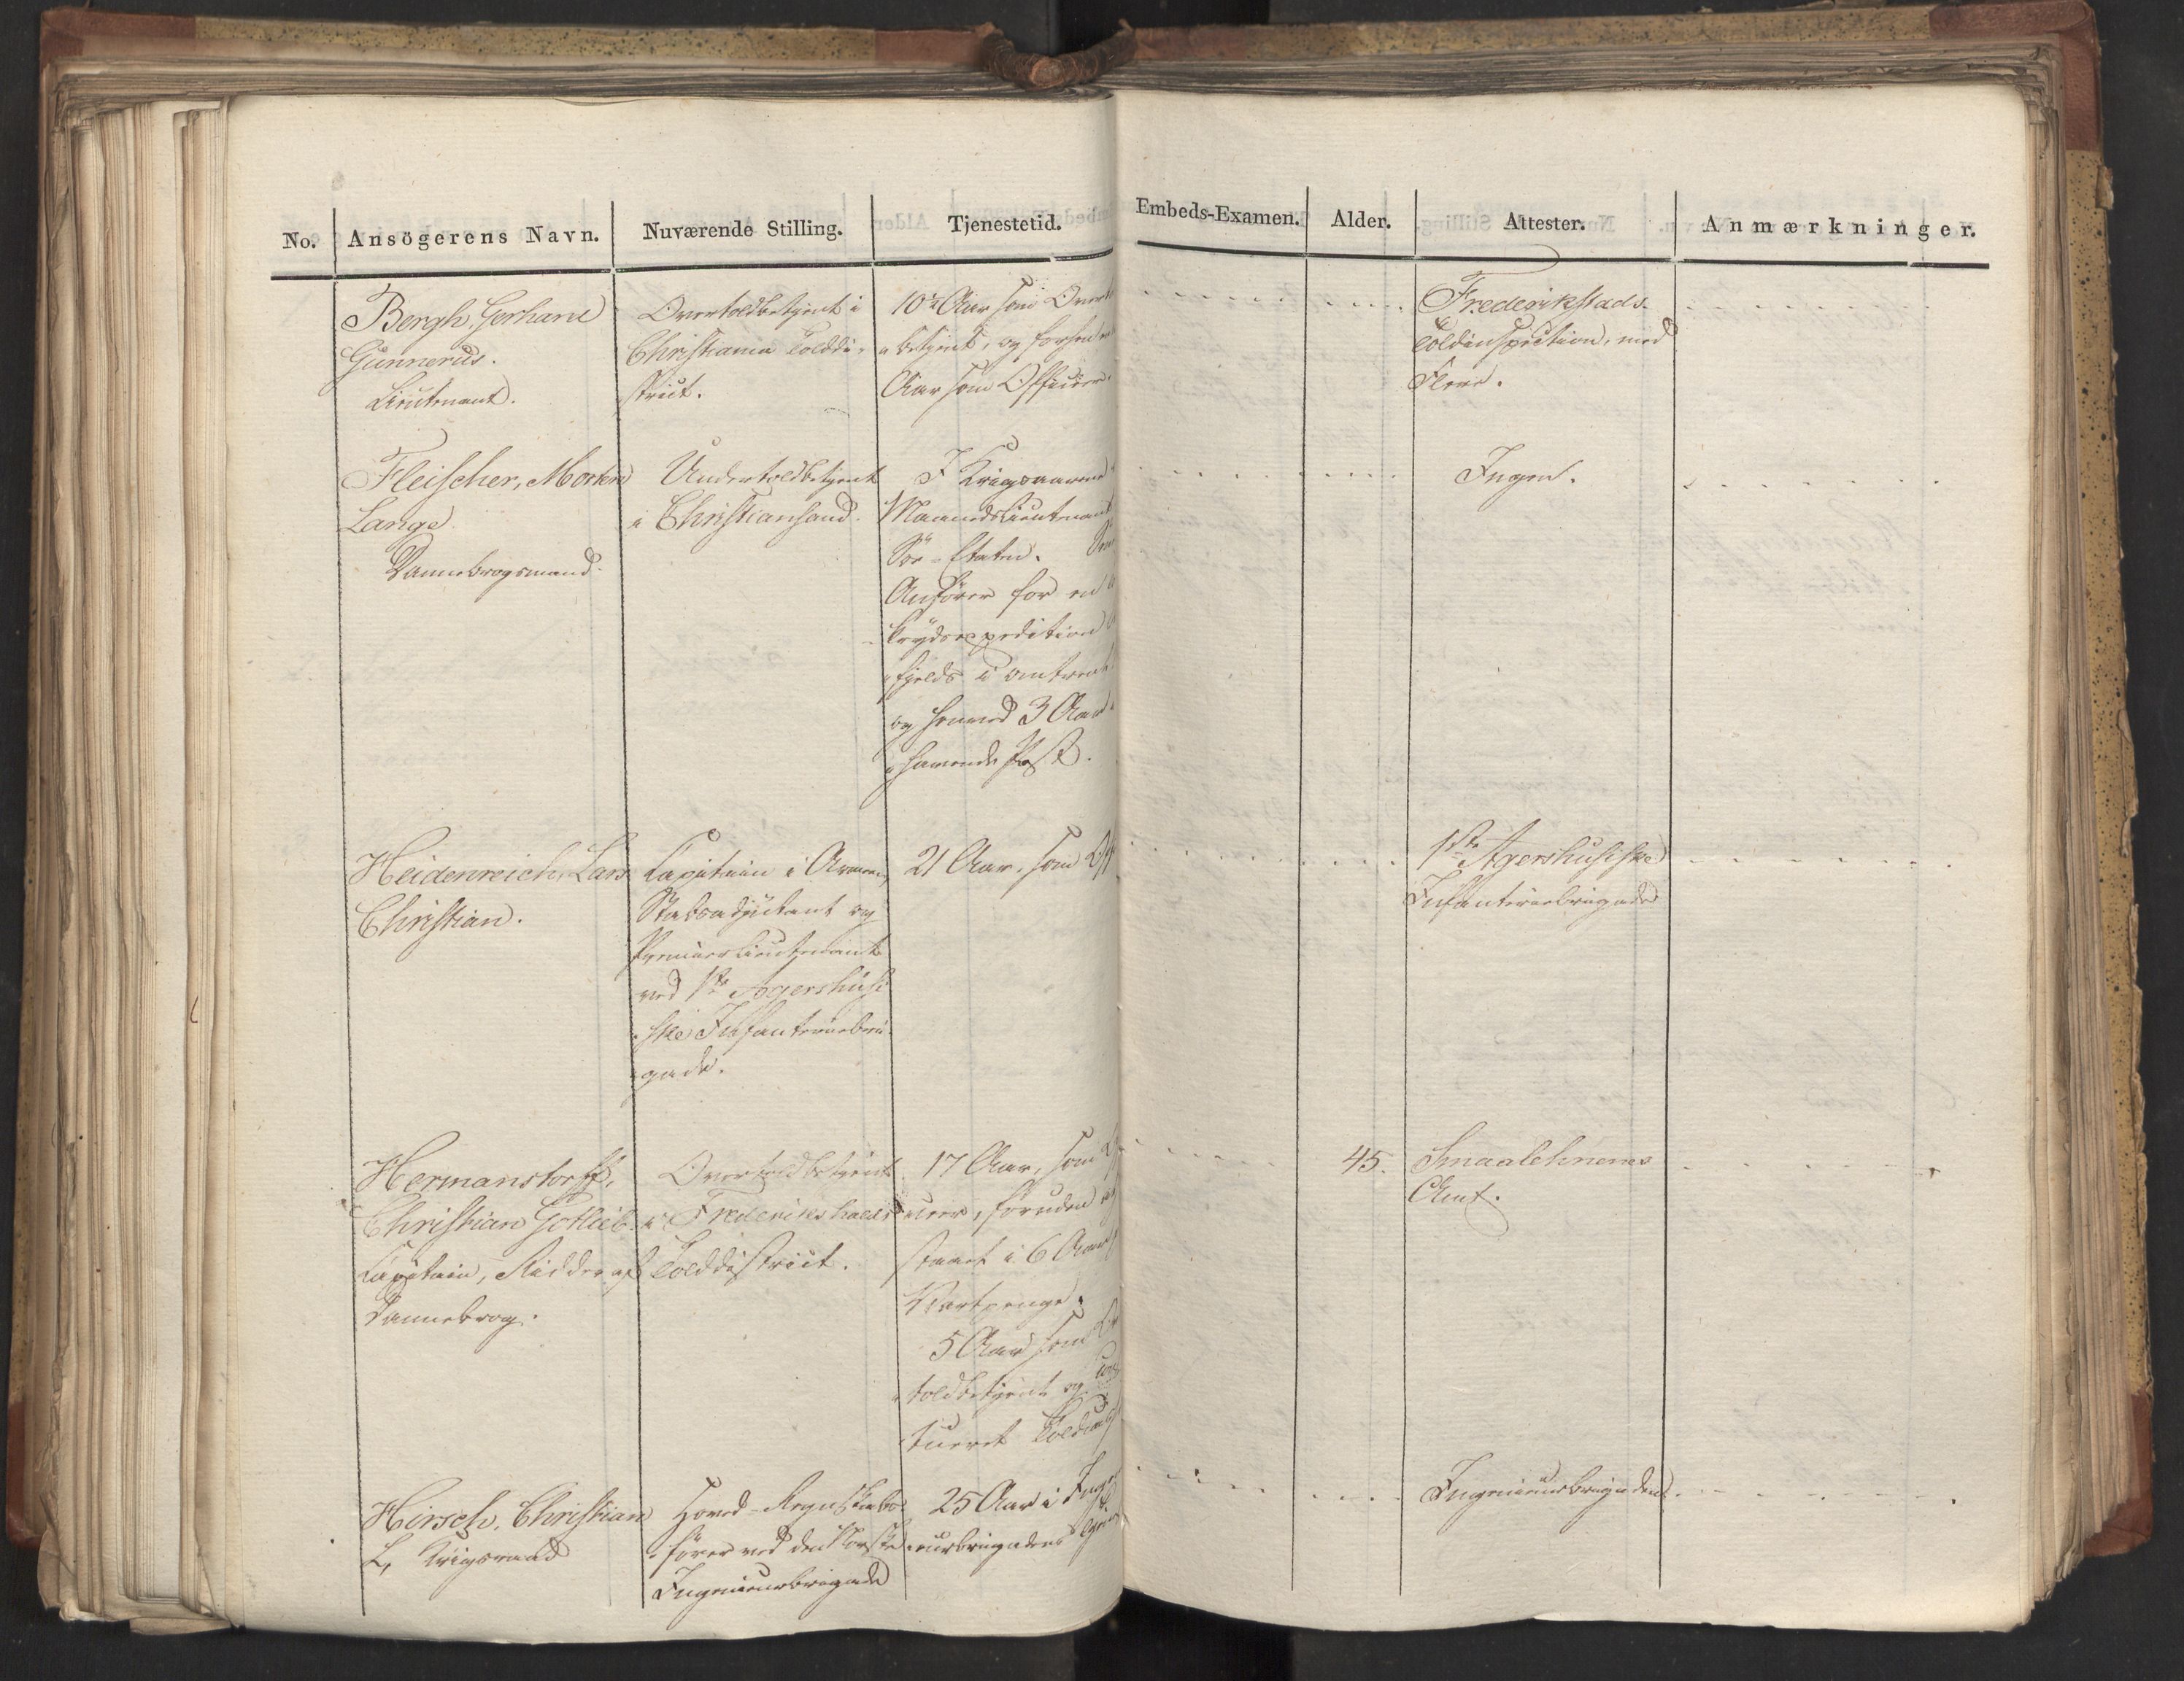 No.
Ansögerens Navn.
Nuværende Stilling.
Tjenestetid.
Embeds-Examen.
Alder.
Attester.
Anmærkninger.
Bergh, Gerhard
Gunnerus.
Lieutenant.
Overtoldbetjent i
Christiania Tolddi-
strict.
10½ Aar som Overt
betjent, og forhen
Aar som Officier.
Frederikstads
Toldinspection, med
Flere.
Fleischer, Morten
Lange
Dannebrogsmand.
Undertoldbetjent
i Christiansand.
I Krigsaarene
Maanedslieutenant
Söe-Etaten.
Anförer for en
Krydsexpedition
fjelds i omtrent
og henved 3 Aar
havende Post.
Ingen.
Heidenreich, Lars
Christian.
Capitain i Armeen,
Stabsadjutant og
Premierlieutenant
ved 1ste Agershusi
ske Infanteriebri-
gade.
21 Aar, som Off
1ste Agershusiske
Infanteriebrigade
Hermanstorff,
Christian Gotlieb.
Capitain, Ridder af
Dannebrog.
Overtoldbetjent
i Frederikshalds
Tolddistrict.
17 Aar, som
cier, foruden
staaet i 6 Aar
Vartpenge.
5 Aar som
toldbetjent og
tueret
45.
Smaalehnenes
Amt.
Hirsch, Christian
L, Krigsraad
Hoved-Regnskabs-
förer ved den Norske
Ingenieurbrigade
25 Aar i Inge
eurbrigadens
Ingenieurbrigaden.